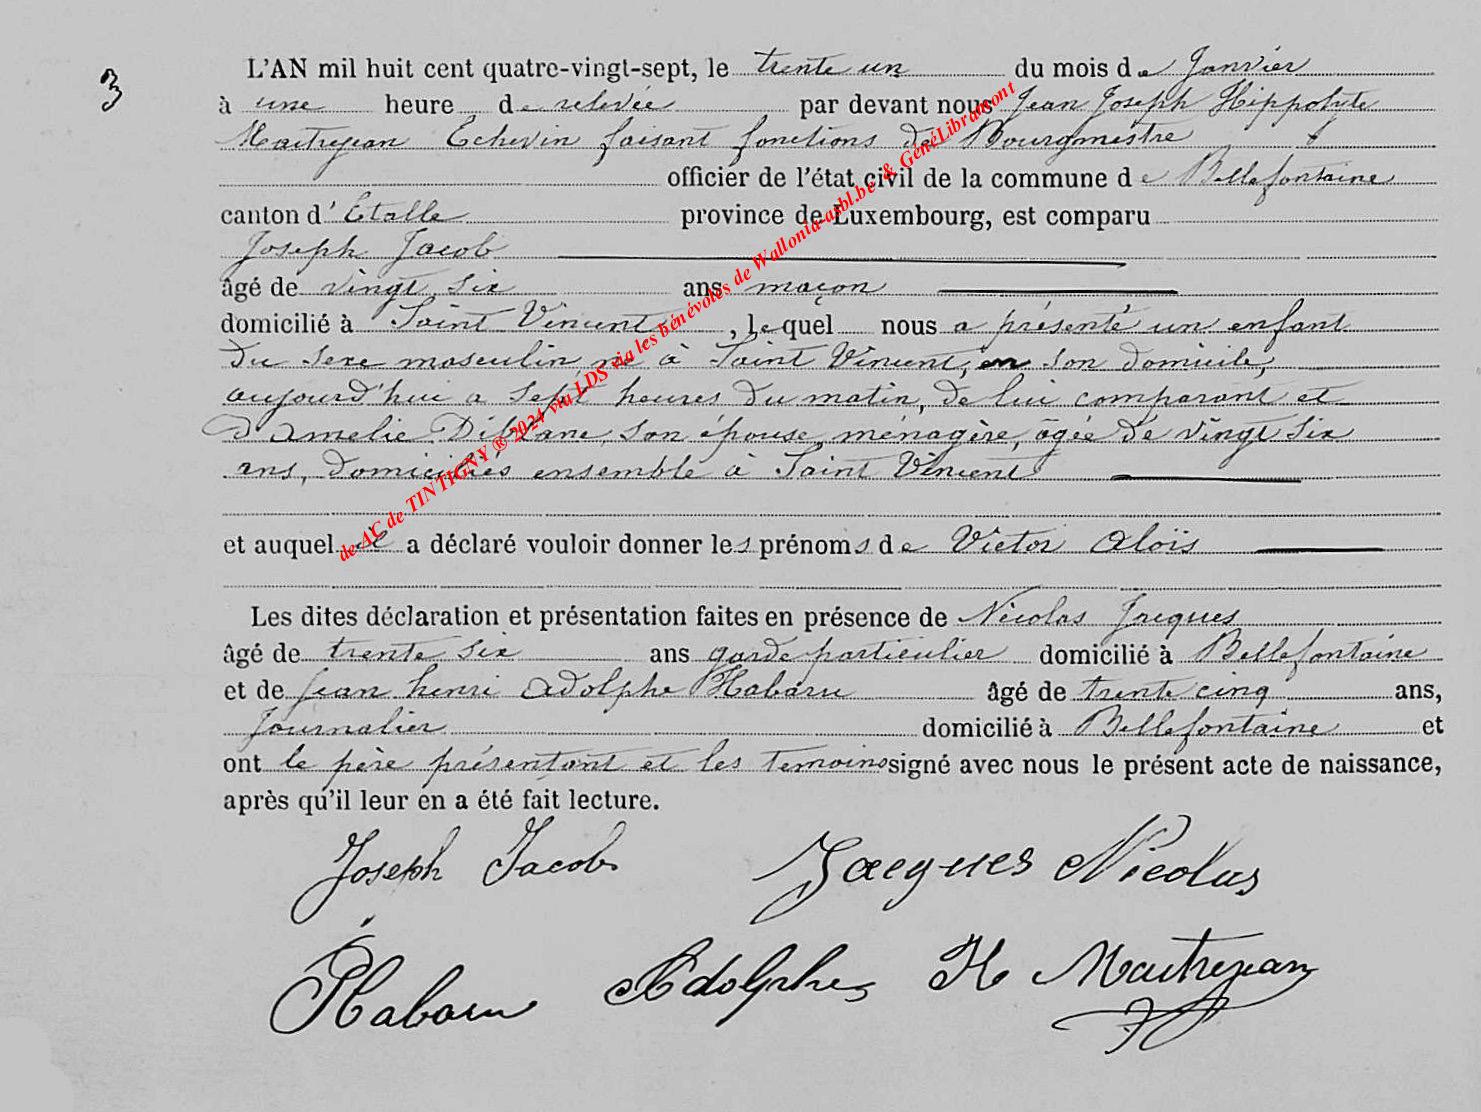 3
L'AN mil huit cent quatre-vingt-sept, le trente un du mois de Janvier
à une heure de relevée par devant nous Jean Joseph Hippolyte
Maitrejean Echevin faisant fonctions de Bourgmestre
officier de l'état civil de la commune de Bellefontaine
canton d'Etalle province de Luxembourg, est comparu
Joseph Jacob
âgé de vingt six ans maçon
domicilié à Saint Vincent, lequel nous a présenté un enfant
du sexe masculin né à Saint Vincent, en son domicile,
aujourd'hui a sept heures du matin, de lui comparant et
d'Amelie Diblane, son épouse, ménagère, âgée de vingt six
ans, domiciliés ensemble à Saint Vincent
et auquel il a déclaré vouloir donner les prénoms de Victor Aloïs
Les dites déclaration et présentation faites en présence de Nicolas Jacques
âgé de trente six ans garde particulier domicilié à Bellefontaine
et de Jean henri Adolphe Habaru âgé de trente cinq ans,
Journalier domicilié à Bellefontaine et
ont le père présentant et les temoins signé avec nous le présent acte de naissance,
après qu'il leur en a été fait lecture.
Joseph Jacob Jacques Nicolas
Habaru Adolphe H Maitrejean
de AC de TINTIGNY ® 2024 via LDS via les bénévoles de Wallonia-asbl.be & GénéLibramont